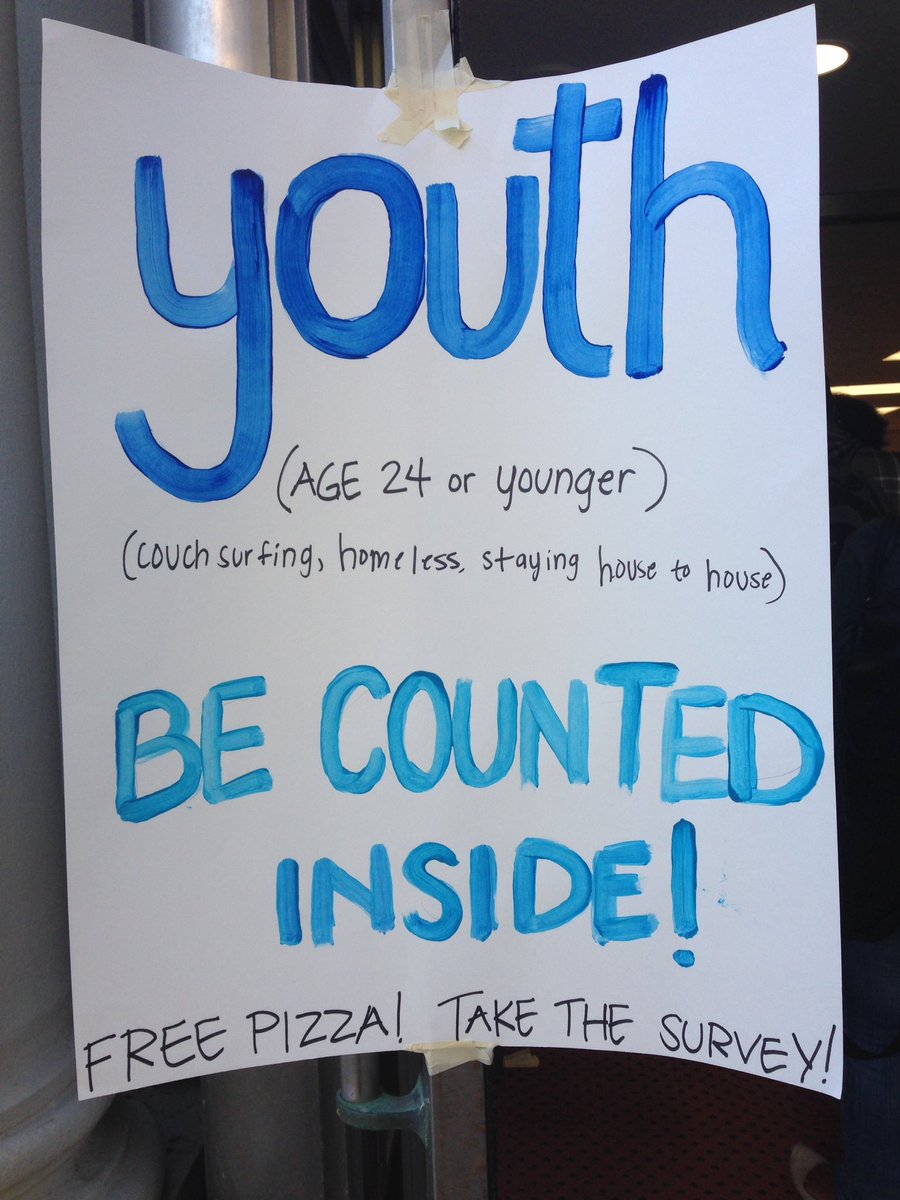 youth
(AGE 24 or younger)
(couch surfing, homeless, staying house to house)
BE COUNTED
INSIDE!
FREE PIZZA! TAKE THE SURVEY!